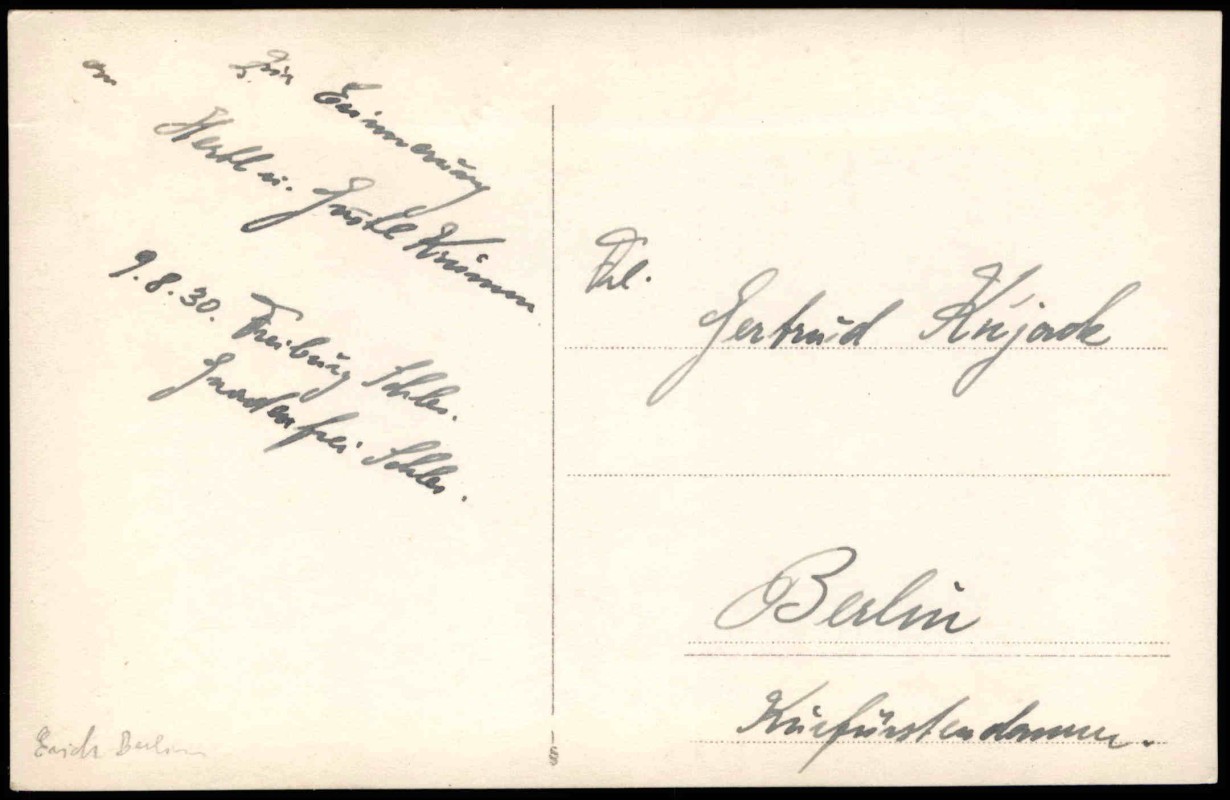 Zur Erinnerung
an
Hertl u. Gustl Krumm
9.8.30. Freiburg Schles.
Gnadenfrei Schles.
Frl.
Gertrud Kujack
Berlin
Kurfürstendamm.
Erich Berlin
§